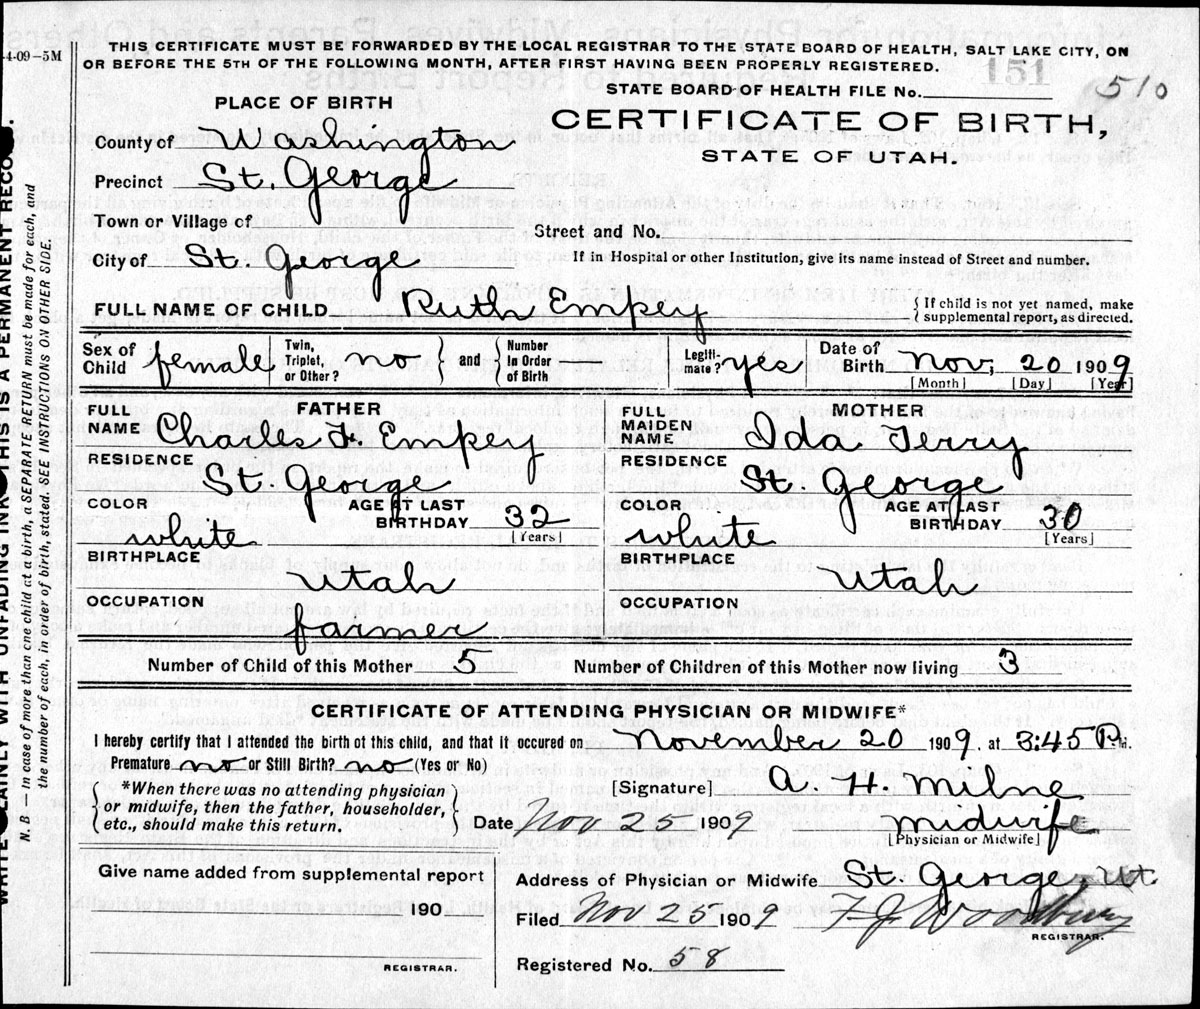 THIS CERTIFICATE MUST BE FORWARDED BY THE LOCAL REGISTRAR TO THE STATE BOARD OF HEALTH, SALT LAKE CITY, ON
4-09-5M
OR BEFORE THE 5TH OF THE FOLLOWING MONTH, AFTER FIRST HAVING BEEN PROPERLY REGISTERED.
151
STATE BOARD OF HEALTH FILE No. 510
PLACE OF BIRTH
CERTIFICATE OF BIRTH,
STATE OF UTAH.
County of Washington
Precinct St. George
Town or Village of
Street and No.
City of St. George
If in Hospital or other Institution, give its name instead of Street and number.
FULL NAME OF CHILD Ruth Empey
{ If child is not yet named, make
supplemental report, as directed.
Sex of Child female
Twin, Triplet, or Other? no } and { Number In Order of Birth
Legiti-mate? yes
Date of Birth Nov, 20 1909
[Month] [Day] [Year]
FATHER
FULL NAME Charles F. Empey
RESIDENCE St. George
COLOR white
AGE AT LAST BIRTHDAY 32
[Years]
BIRTHPLACE Utah
OCCUPATION farmer
MOTHER
FULL MAIDEN NAME Ida Terry
RESIDENCE St. George
COLOR white
AGE AT LAST BIRTHDAY 30
[Years]
BIRTHPLACE Utah
OCCUPATION
Number of Child of this Mother 5 Number of Children of this Mother now living 3
CERTIFICATE OF ATTENDING PHYSICIAN OR MIDWIFE*
I hereby certify that I attended the birth of this child, and that it occured on November 20 1909, at 3:45 P.M.
Premature no or Still Birth? no (Yes or No)
{ *When there was no attending physician
or midwife, then the father, householder,
etc., should make this return. }
[Signature] A. H. Milne
Date Nov 25 1909 midwife
[Physician or Midwife]
Give name added from supplemental report
190
REGISTRAR.
Address of Physician or Midwife St. George Ut.
Filed Nov 25 1909 F J Woodbury
REGISTRAR.
Registered No. 58
WRITE PLAINLY WITH UNFADING INK THIS IS A PERMANENT RECORD.
N. B — In case of more than one child at a birth, a SEPARATE RETURN must be made for each, and
the number of each, in order of birth, stated. SEE INSTRUCTIONS ON OTHER SIDE.